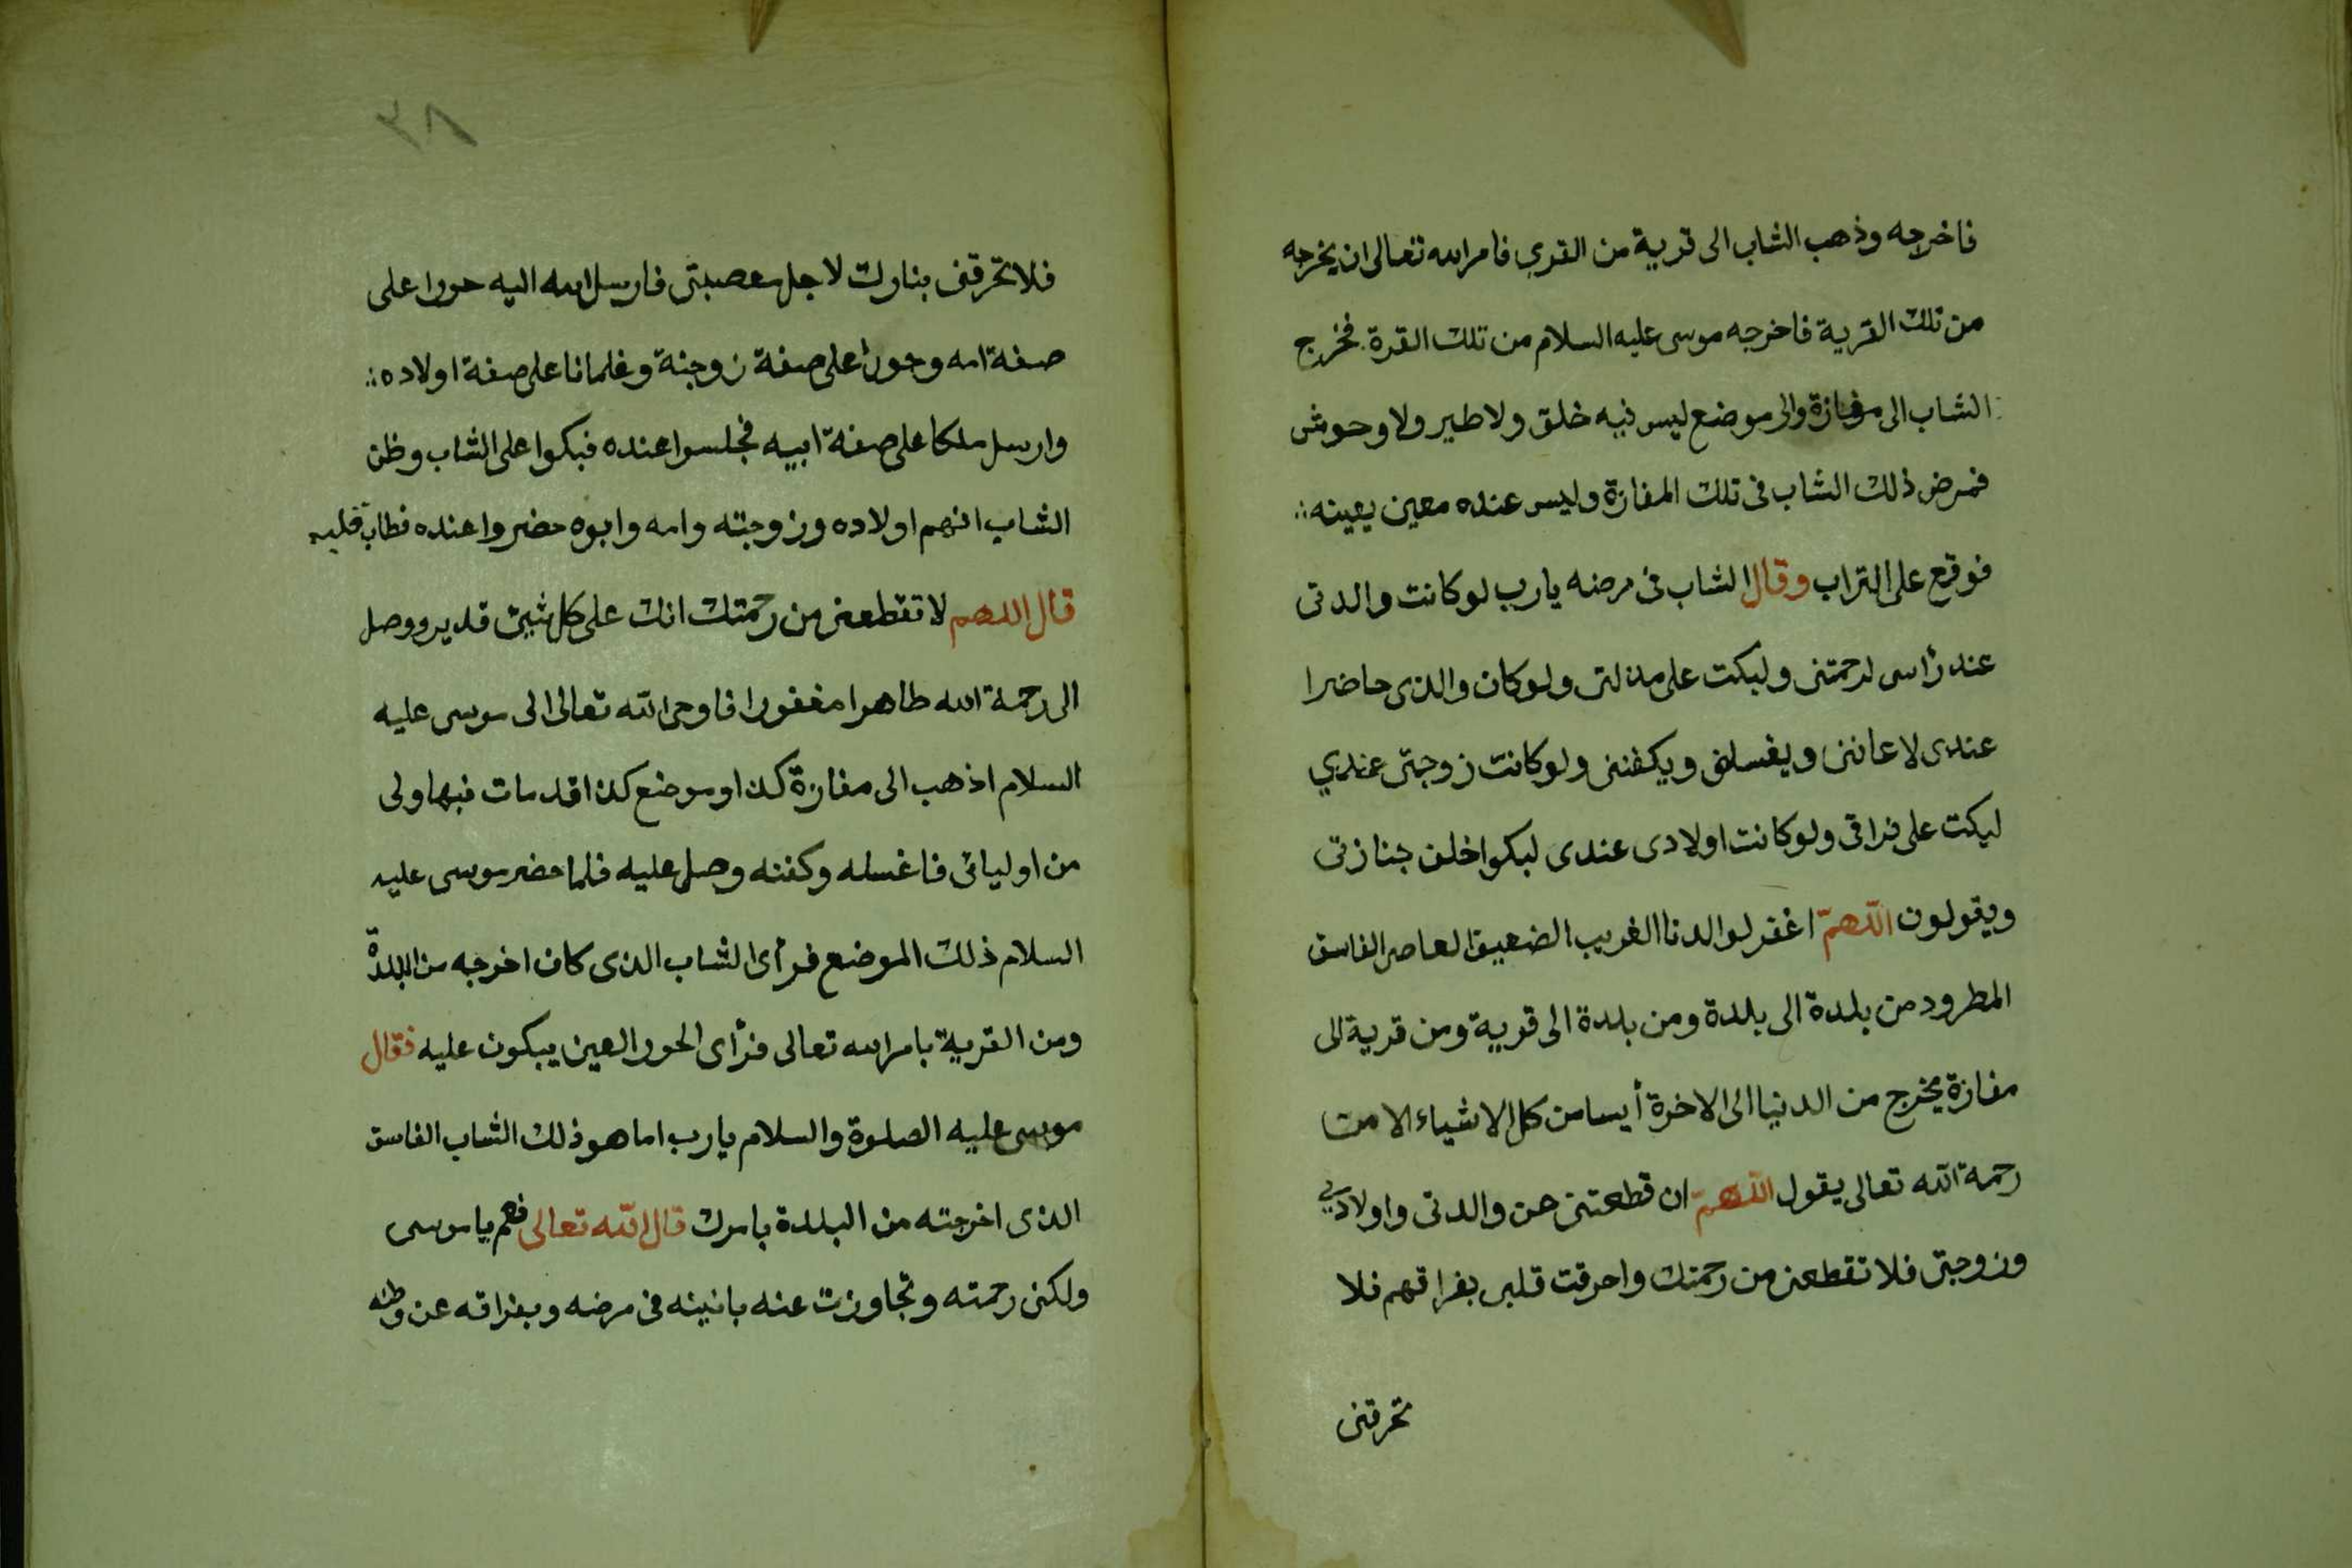 فاخرجه وذهب الشاب الى قرية من القرى فامر الله تعالى ان يخرجه
من تلك القرية فاخرجه موسى عليه السلام من تلك القرة فخرج
الشاب الى مفازة والى موضع ليس فيه خلق ولا طير ولا وحوش
فمرض ذلك الشاب فى تلك المفازة وليس عنده معين يعينه
فوقع على التراب وقال الشاب فى مرضه يارب لو كانت والدتى
عند رأسى لرحمتنى ولبكت على مذلتى ولو كان والدى حاضرا
عندى لاعاننى ويغسلنى ويكفننى ولو كانت زوجتى عندي
لبكت على فراقى ولو كانت اولادى عندى لبكوا خلف جنازتى
ويقولون اللهمّ اغفر لوالدنا الغريب الضعيف العاصى الفاسق
المطرود من بلدة الى بلدة ومن بلدة الى قرية ومن قرية الى
مفازة يخرج من الدنيا الى الاخرة أيسا من كل الاشياء الا من
رحمة الله تعالى يقول اللهمّ ان قطعتنى عن والدتى واولادي
وزوجتى فلا تقطعنى من رحمتك واحرقت قلبى بفراقهم فلا
تحرقنى
٣٨
فلا تحرقنى بنارك لاجل معصيتى فارسل الله اليه حورا على
صفة امه وحورا على صفة زوجته وغلمانا على صفة اولاده
وارسل ملكا على صفة ابيه فجلسوا عنده فبكوا على الشاب وظن
الشاب انهم اولاده وزوجته وامه وابوه حضروا عنده فطاب قلبه
قال اللهم لا تقطعنى من رحمتك انك على كل شيئ قدير ووصل
الى رحمة الله طاهرا مغفورا فاوحى الله تعالى الى موسى عليه
السلام اذهب الى مفازة كذا وموضع كذا قد مات فيها ولى
من اوليائى فاغسله وكفنه وصل عليه فلما حضر موسى عليه
السلام ذلك الموضع فرأى الشاب الذى كان اخرجه من البلدة
ومن القرية بامر الله تعالى فرأى الحور العين يبكون عليه فقال
موسى عليه الصلوة والسلام يارب اما هو ذلك الشاب الفاسق
الذى اخرجته من البلدة بامرك قال الله تعالى نعم يا موسى
ولكنى رحمته وتجاوزت عنه بانينه فى مرضه وبفراقه عن وطنه